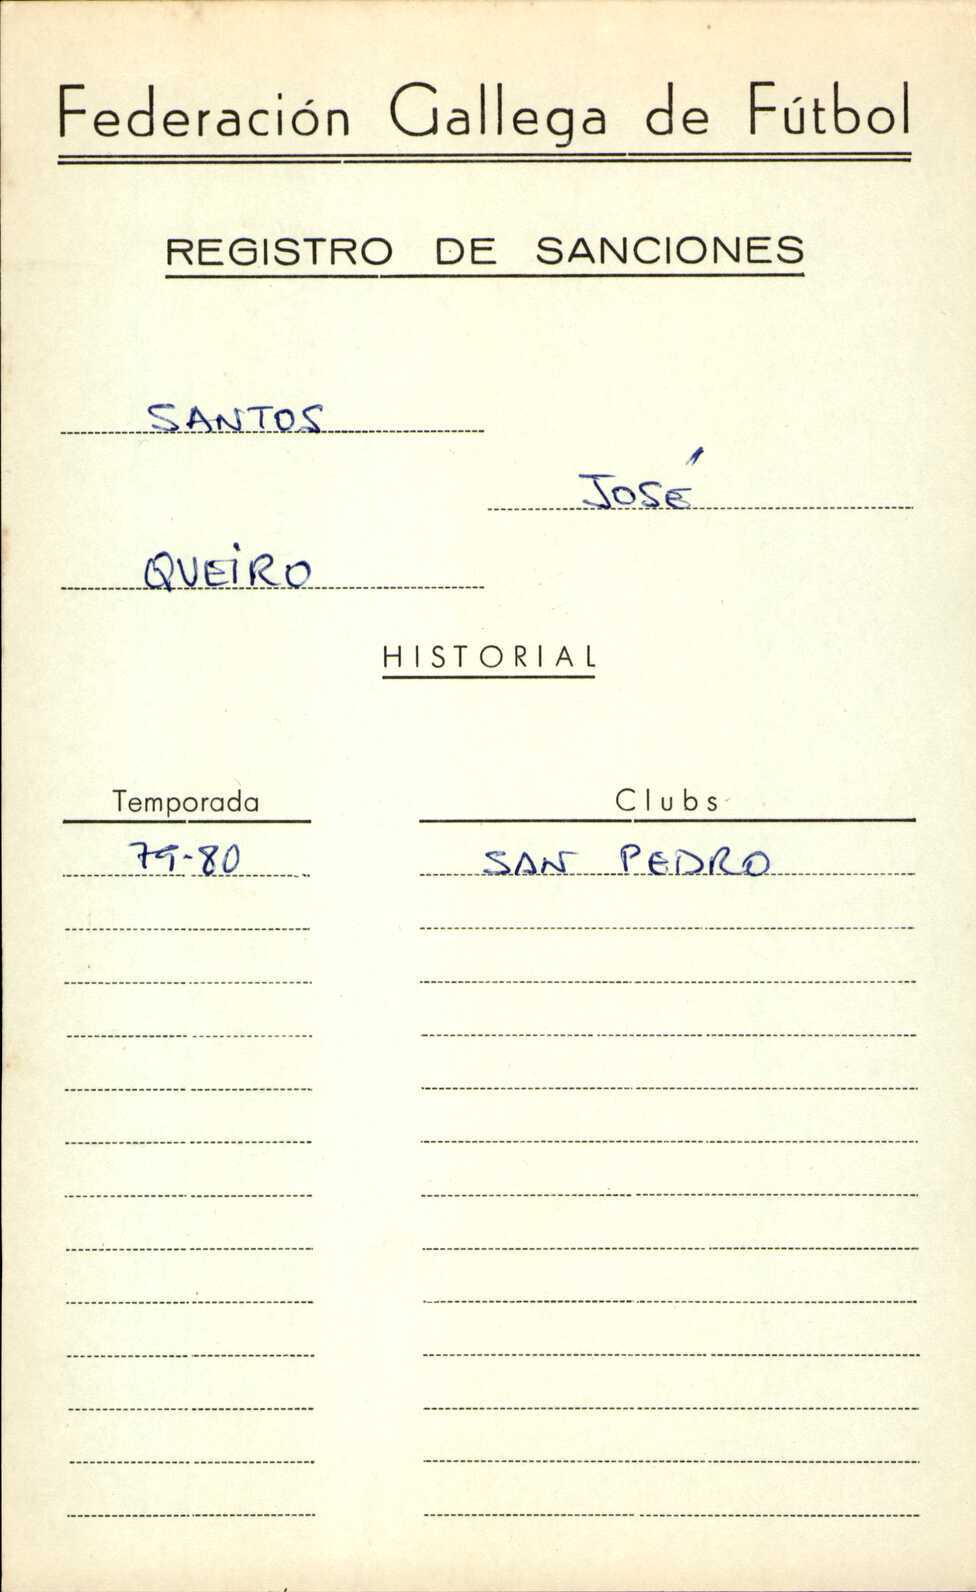 Federación Gallega de Fútbol
REGISTRO DE SANCIONES
SANTOS
JOSÉ
QUEIRO
HISTORIAL
Temporada Clubs
79-80 SAN PEDRO